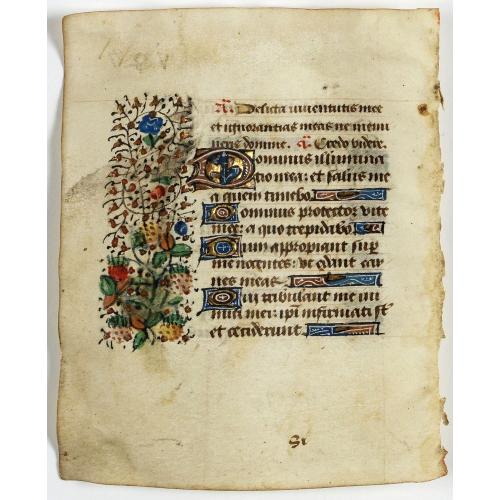 Delicta iuventutis mee
et ignorantias meas ne memi
neris domine. Credo videre.
Dominus illumina
tio mea: et salus me
a quem timebo.
Dominus protector vite
mee: a quo trepidabo.
Dum appropiant sup
me nocentes: ut edant car
nes meas.
Qui tribulant me ini
mici mei: ipi infirmati st
et ceciderunt.
Si